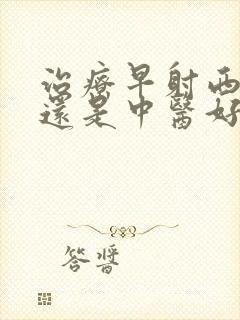 治療早射西
還是中醫好
答醫